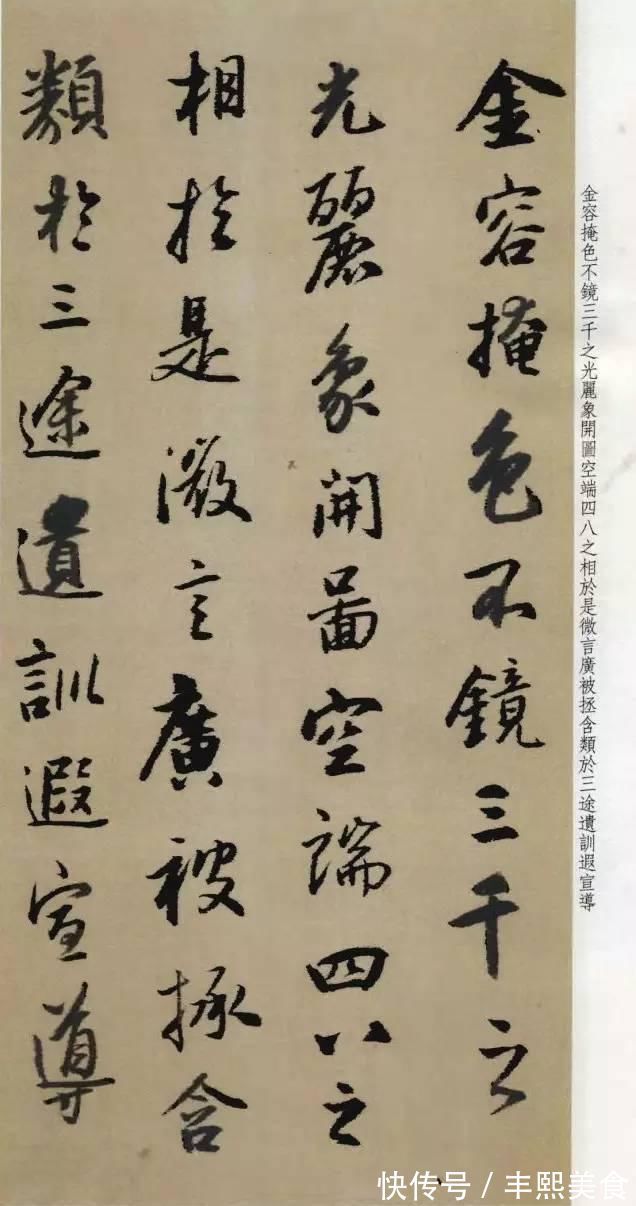 金容掩色不鏡三千之
光麗象開圖空端四八之
相於是微言廣被拯含
類於三途遺訓遐宣導
金容掩色不鏡三千之光麗象開圖空端四八之相於是微言廣被拯含類於三途遺訓遐宣導
快传号/丰熙美食